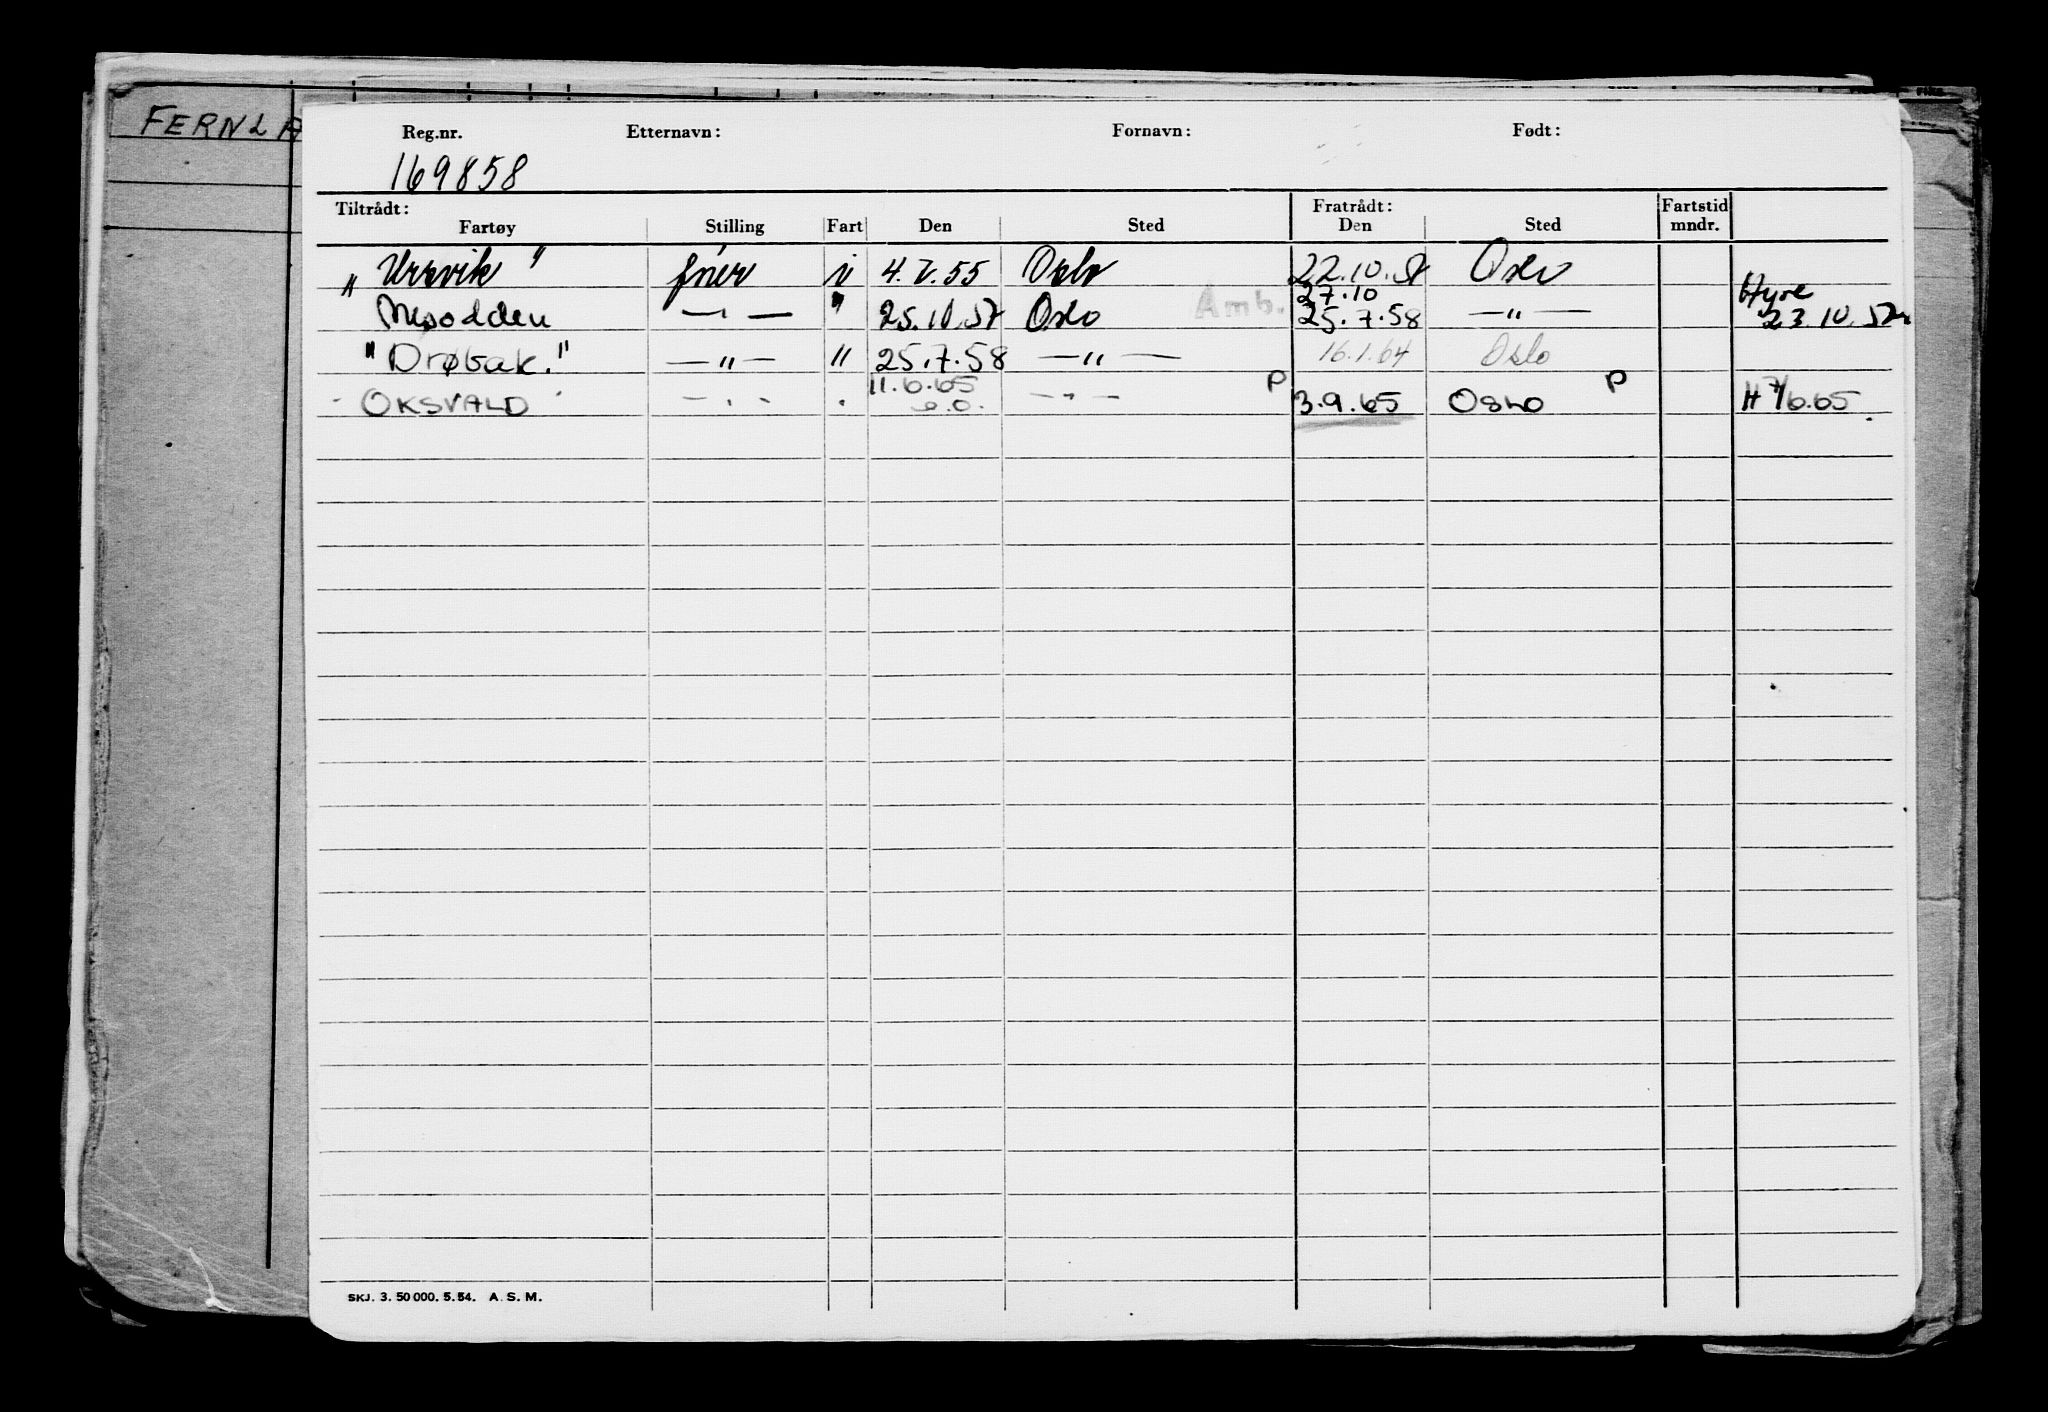 FERNLA
Reg.nr. Etternavn: Fornavn: Født:
169858
Tiltrådt: Fratrådt: Fartstid
Fartøy Stilling Fart Den Sted Den Sted mndr.
"Urevik" i 4.V.55 Oslo 22.10.57 Oslo
27.10 Hyre
Nesodden —"— " 25.10.57 Oslo Amb. 25.7.58 —"— 23.10.57
"Drøbak." —"— " 25.7.58 —"— 16.1.64 Oslo
11.6.65 P P
"OKSVALD" —"— " —"— 3.9.65 OSLO H 7/6.65.
SKJ. 3. 50 000. 5. 54. A. S. M.